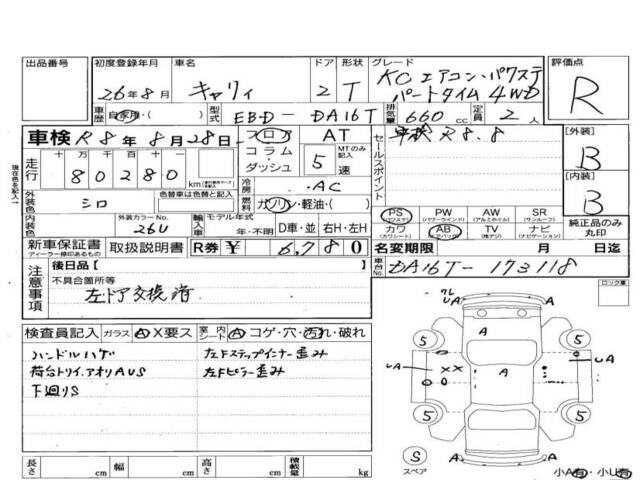 出品番号 初度登録年月 車名 ドア 形状 グレード 評価点
26年8月 キャリィ 2 T KC エアコン・パワステ
パートタイム 4WD R
車歴 自家用・( ) 型式 EBD-DA16T 排気量 660 cc 定員 2 人
車検 R8年8月28日 フロア AT 車検 R8.8 [外装]
走行 十 万 千 百 十 一 コラム・ダッシュ 5速 MTのみ記入 セールスポイント B
80280 km
外装色 シロ 色替車は色替と記入 冷房 AC [内装]
燃料 ガソリン・軽油・( ) B
内装色 外装カラーNo. 26U 輸入車 モデル年式 年・不明 D車・並 右H・左H
PS (パワステ) PW (パワーウインド) AW (アルミホイル) SR (サンルーフ) 純正品のみ丸印
カワ (カワシート) AB (エアバッグ) TV (地デジ) ナビ (ナビゲーション)
新車保証書 ディーラー捺印あるもの 取扱説明書 R券 ¥ 6,780 名変期限 月 日迄
車台No. DA16T-173118
注意事項 後日品[
不具合箇所等
左ドア交換済
ロック車
検査員記入 ガラス A X要ス 室内シート A コゲ・穴・汚れ・破れ
ハンドルハゲ 左Fステップインナー歪み
荷台トリイ.アオリAUS 左Fピラー歪み
下廻りS
A A A A
UA XX UA
5 5
5 5
S
スペア 小A有・小U有
長さ cm 幅 cm 高さ cm 積載量 kg
現在色を記入